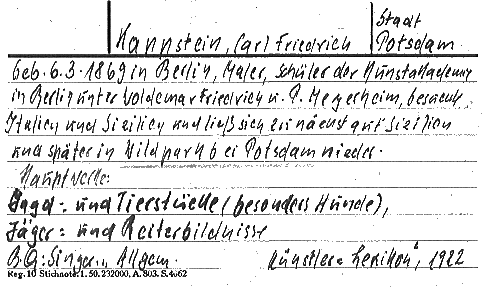 Stadt
Kannstein, Carl Friedrich Potsdam
Geb. 6.3.1869 in Berlin, Maler, Schüler der Kunstakademie
in Berlin unter Woldemar Friedrich u. P. Meyerheim, besucht
Italien und Sizilien und ließ sich zunächst auf Sizilien
und später in Wildpark bei Potsdam nieder.
Hauptwerke:
Jagd- und Tierstücke (besonders Hunde),
Jäger- und Reiterbildnisse
B.Q: Singer „Allgem. Künstler-Lexikon", 1922
Reg. 10 Stichnote. 1. 50. 232000, A. 803. S. 4662